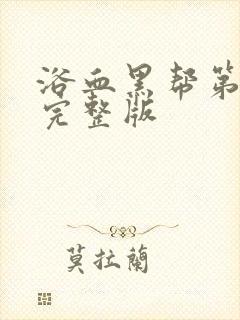 浴血黑帮第
完整版
莫拉蘭